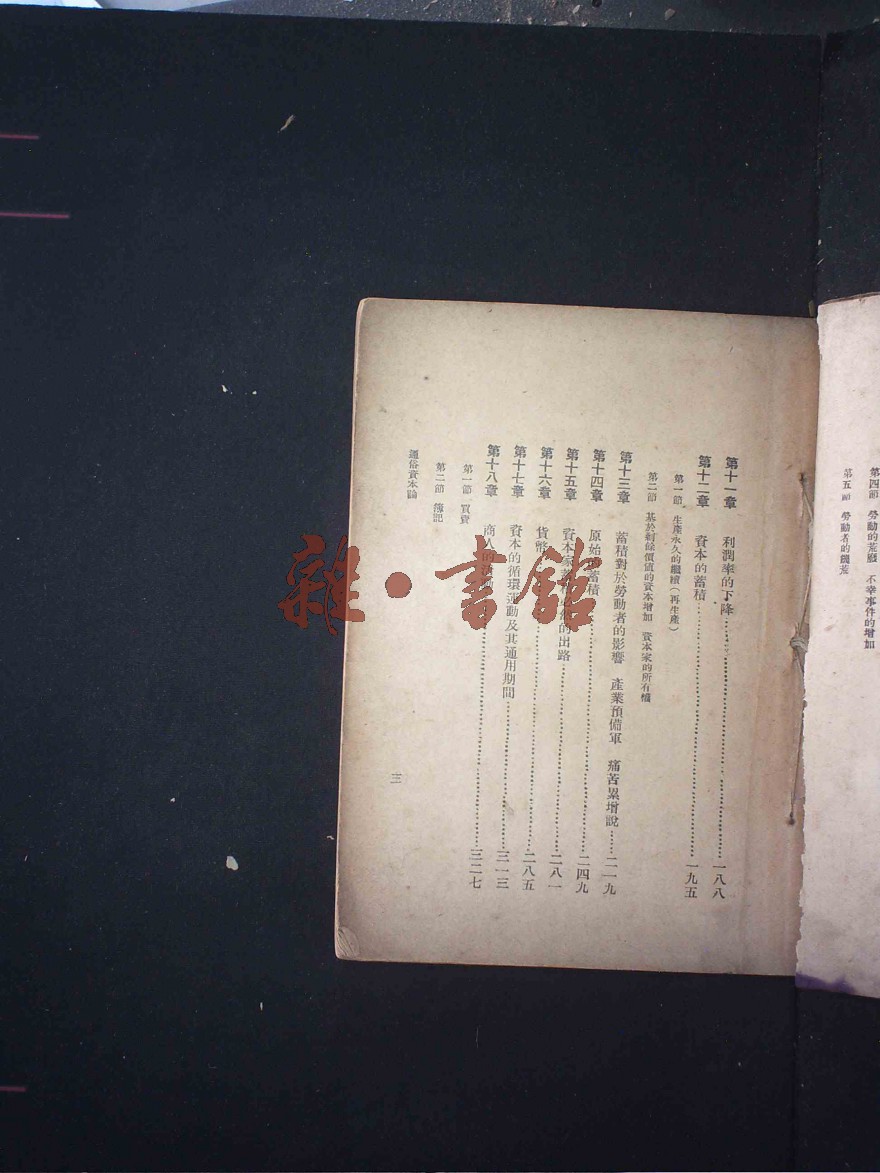 第四節 勞動的荒廢 不幸事件的增加
第五節 勞動者的饑荒
第十一章 利潤率的下降 一八八
第十二章 資本的蓄積 一九五
第一節 生產永久的繼續（再生產）
第二節 基於剩餘價值的資本增加 資本家的所有權
第十三章 蓄積對於勞動者的影響 產業預備軍 痛苦累增說 二一九
第十四章 原始的蓄積 二四九
第十五章 資本家蓄積 的出路 二八一
第十六章 貨幣 二八五
第十七章 資本的循環運動及其通用期間 三一三
第十八章 商人的 三二七
第一節 買賣
第二節 簿記
通俗資本論
三
雜·書館